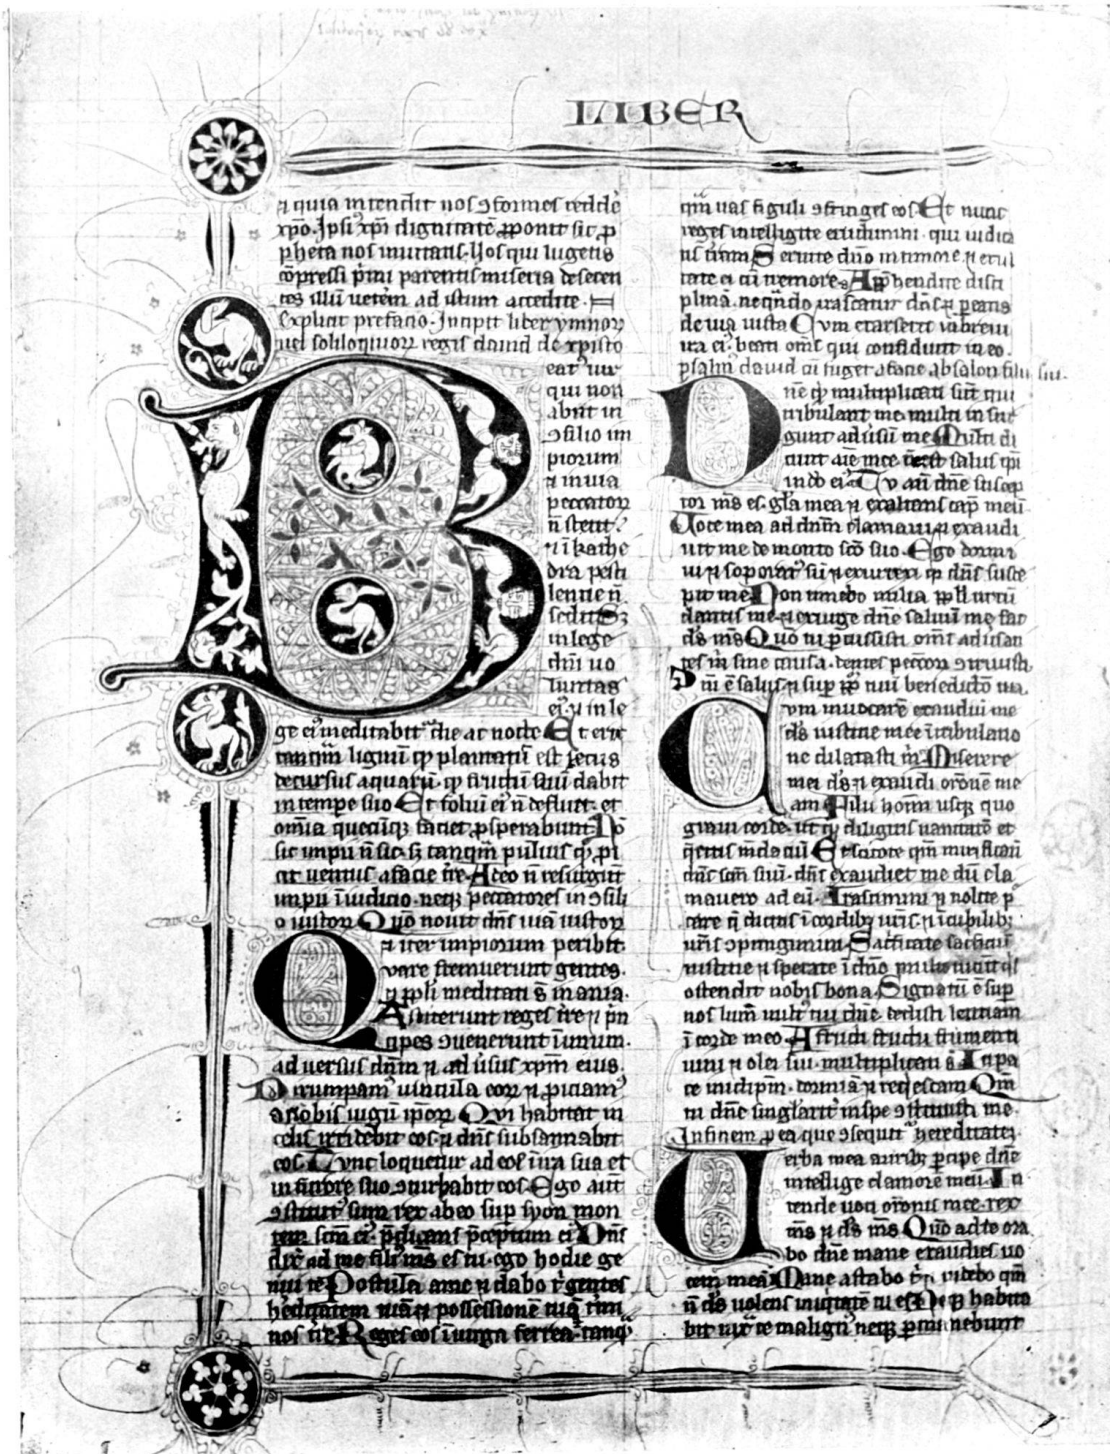 LIBER
⁊ quia intendit nos ↄformes reddeꝰ
xp̄o. Ipsi xp̄i dignitatē ꝓponit sic ꝓ
pheta nos inuitans. Hos qui lugetis
cōpressi p̄mi parentis miseria
tes illū uetem ad istum accedite.
Explicit prefacio. Incipit liber ymnoꝝ
uel soliloquioꝝ regis dauid de xpisto
Beatꝰ uir
qui non
abiit in
ↄsilio im
piorum
⁊ in uia
peccatoꝝ
n̄ stetit.
⁊ ī kathe
dra pesti
lentie n̄
sedit Sꝫ
in lege
dn̄i uo
luntas
eiꝰ ⁊ in le
ge eiꝰ meditabit᷑ die ac nocte Et erit
tanq̄m lignū qꝫ plantatū est secus
decursus aquarū. qꝫ fructū suū dabit
in tempe suo Et foliū eiꝰ n̄ defluit. et
om̄ia quecūqꝫ faciet ꝓsperabunt. Nō
sic impii n̄ sic. sꝫ tanq̄m puluis qꝫ ꝓi
cit uentus a facie tr̄e. Ideo n̄ resurgūt
impii ī iudicio. neqꝫ peccatores in ↄsili
o iustoꝝ Qūo nouit dn̄s uiā iustoꝝ
⁊ iter impiorum peribit.
Quare fremuerunt gentes.
⁊ ppl̄i meditati s̄ inania.
Astiterunt reges tr̄e ⁊ p̄n
cipes ↄuenerunt ī unum.
aduersus dn̄m ⁊ adūsus xp̄m eius.
Dirumpamꝰ uincula eoꝝ ⁊ ꝓiciamꝰ
a nobis iugū ipoꝝ Qvi habitat in
celis irridebit eos. ⁊ dn̄s subsannabit
eos. Tvnc loquetur ad eos ī ira sua et
in furore suo ↄturbabit eos Ego aut̄
ↄstitutꝰ sum rex abeo sup syon mon
tem scm̄ eiꝰ. p̄dicans p̄ceptum eiꝰ Dn̄s
dix̄ ad me filiꝰ m̄s es tu. ego hodie ge
nui te Postula ame ⁊ dabo t̄ gentes
h̄editatem tuā ⁊ possessionē tuā t̄mi
nos tr̄e Reges eos ī uirga ferrea. tanq̄
q̄m uas figuli ↄfringes eos Et nunc
reges intelligite erudimini. qui iudica
tis t̄ram Seruite dn̄o in timore. ⁊ exul
tate ei cū tremore. App̄hendite disci
plinā. neqn̄do irascatur dn̄s. ⁊ peatis
de uia iusta Cvm exarserit in breui
ira eiꝰ. beati om̄s qui confidunt in eo.
psalm̄ dauid cū fuger a facie absalon filii sui.
Dn̄e qꝫ multiplicati sūt qui
tribulant me. multi in sur
gunt adūsū me Multi di
cunt aīe mee n̄ est salus ipi
in dō eiꝰ. Tv aū dn̄e suscep
tor m̄s es. gl̄a mea ⁊ exaltans cap̄ meū
Uoce mea ad dn̄m clamaui. ⁊ exaudi
uit me de monte scō suo. Ego dormi
ui ⁊ soporatꝰ sū. ⁊ exurrexi qꝫ dn̄s susce
pit me Non timebo milia ppl̄i circū
dantis me. exurge dn̄e saluū me fac
ds̄ m̄s Qūo tu p̄cussisti om̄s adūsan
tes m̄ sine causa. dentes pecctoꝝ ↄtriuisti
Dn̄i ē salus ⁊ sup pp̄lm tuū benedictō tua.
Cvm inuocarē exaudiui me
ds̄ iustitie mee ī tribulatio
ne dilatasti m̄ Miserere
mei ds̄. ⁊ exaudi orōnē me
am Filii hoīm usqꝫ quo
graui corde. ut qꝫ diligitis uanitatē et
q̄ritis m̄daciū Et scitote q̄m mirificau
dn̄s scm̄ suū. dn̄s exaudiet me dū cla
mauero ad eū. Irascimini ⁊ nolite p
care. q̄ dicitis ī cordibꝫ ur̄is. ⁊ ī cubilibꝫ
ur̄is ↄpungimini. Sacficate sacficiū
iustitie ⁊ sperate ī dn̄o
ostendit nobis bona. Signatū ē sup
nos lum̄ uultꝰ tui dn̄e. dedisti letitiam
ī corde meo. A fructu frumenti
uini ⁊ olei sui. multiplicati s̄ In pa
ce in idipm̄. dormiā ⁊ reqescam Qm̄
tu dn̄e singlarit̄ in spe ↄstituisti me.
In finem p ea que ↄsequit᷑ hereditatē.
Uerba mea auribꝫ p̄cipe dn̄e
intellige clamorē meū. In
tende uoci orōnis mee. rex
m̄s ⁊ ds̄ m̄s Qūo ad te ora
bo dn̄e mane exaudies uo
cem meā Mane astabo t̄. uidebo qm̄
n̄ ds̄ uolens iniq̄tatē tu es Neqꝫ habita
bit iux̄ te malignꝰ neqꝫ p̄manebunt